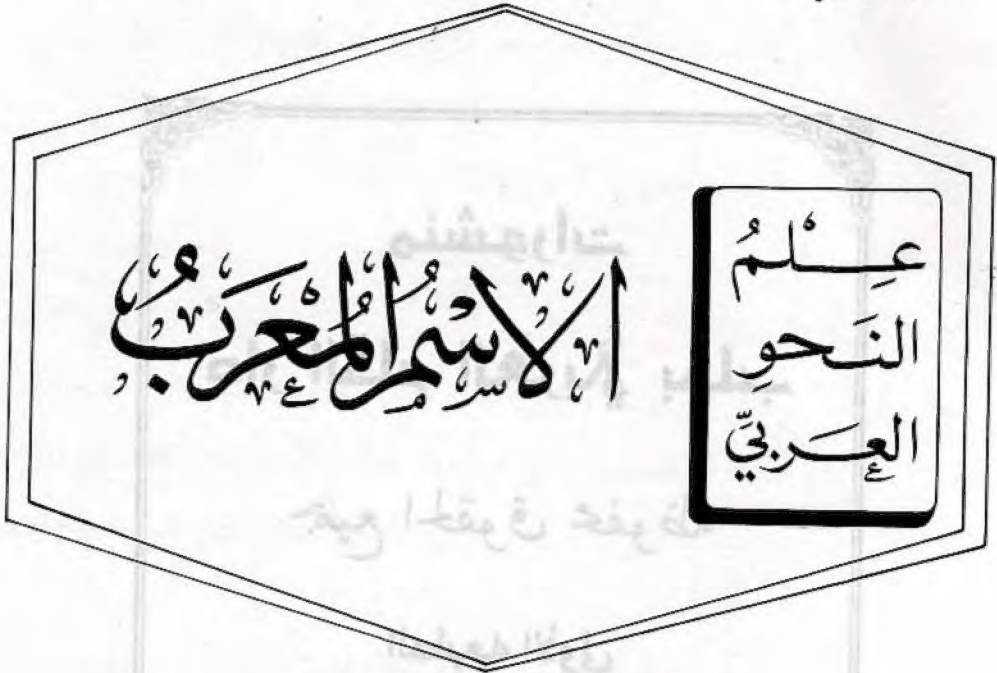 عِلْمُ
النَحوِ
العَرَبيّ
الاسْمُ المُعْرَبُ